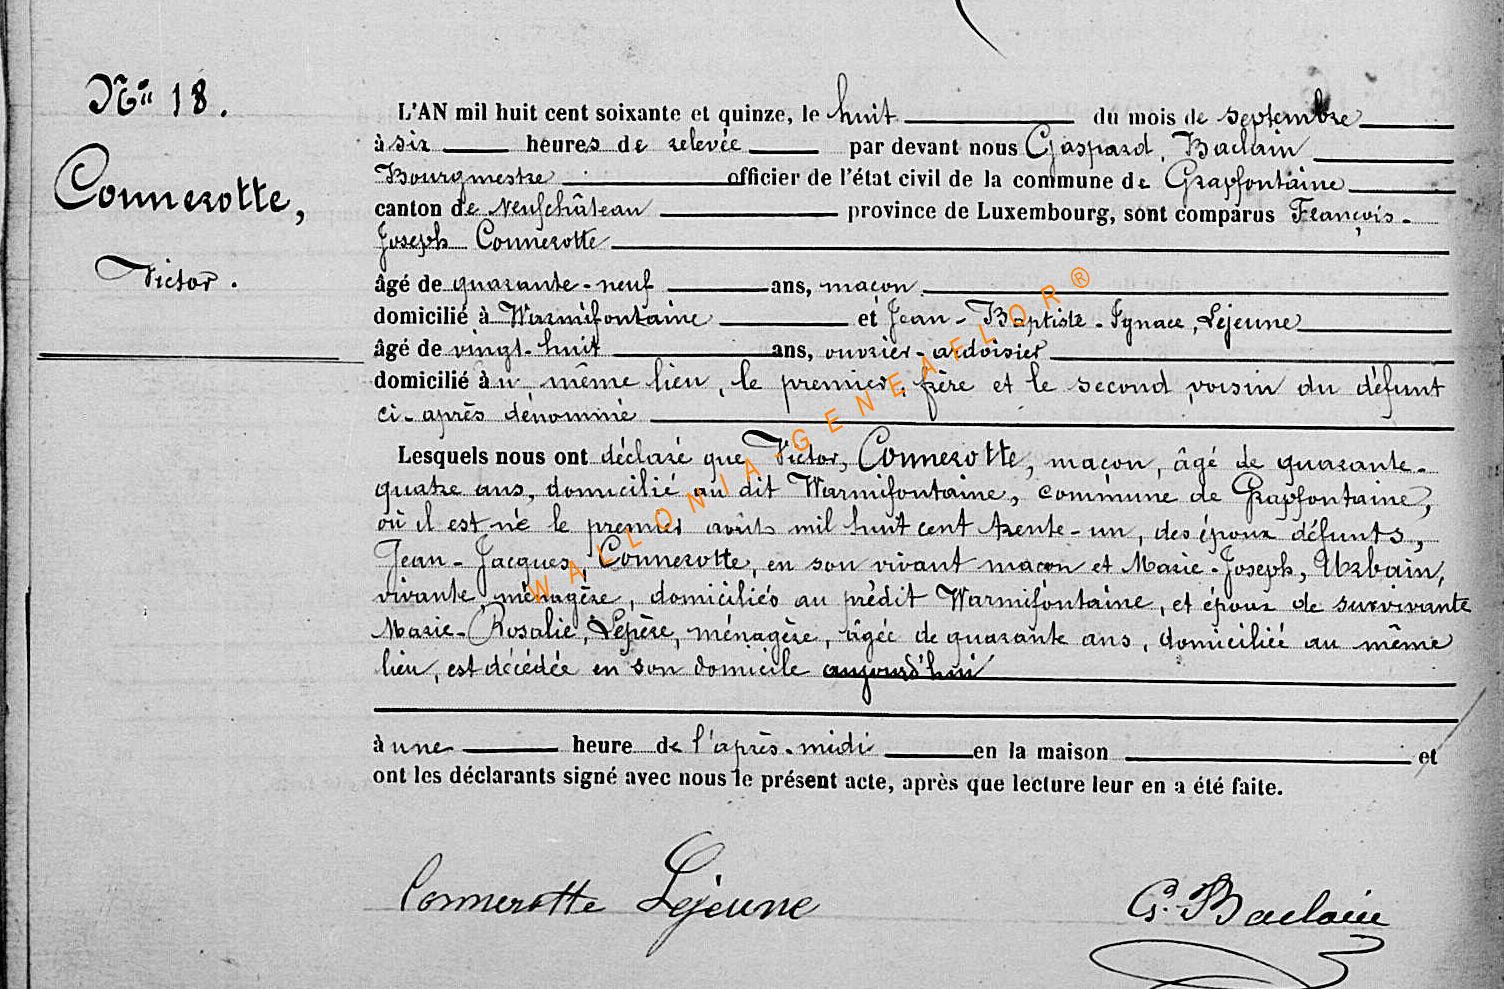 N° 18.
Connerotte,
Victor.
L'AN mil huit cent soixante et quinze, le huit du mois de septembre
à six heures de relevée par devant nous Gaspard, Baclain
Bourgmestre officier de l'état civil de la commune de Grapfontaine
canton de Neufchâteau province de Luxembourg, sont comparus François-
Joseph Connerotte
âgé de quarante-neuf ans, maçon
domicilié à Warmifontaine et Jean-Baptiste-Ignace, Lejeune
âgé de vingt-huit ans, ouvrier-ardoisier
domicilié àu même lieu, le premier, frère et le second voisin du défunt
ci-après dénommé
Lesquels nous ont déclaré que Victor, Connerotte, maçon, âgé de quarante-
quatre ans, domicilié au dit Warmifontaine, commune de Grapfontaine,
où il est né le premier août mil huit cent trente-un, des époux défunts,
Jean-Jacques, Connerotte, en son vivant maçon et Marie-Joseph, Urbain,
vivante ménagère, domiciliés au prédit Warmifontaine, et époux de survivante
Marie-Rosalie, Lepère, ménagère, âgée de quarante ans, domiciliée au même
lieu, est décédée en son domicile aujourd'hui
à une heure de l'après-midi en la maison et
ont les déclarants signé avec nous le présent acte, après que lecture leur en a été faite.
Connerotte Lejeune G. Baclain
WALLONIA GENEAFLOR®